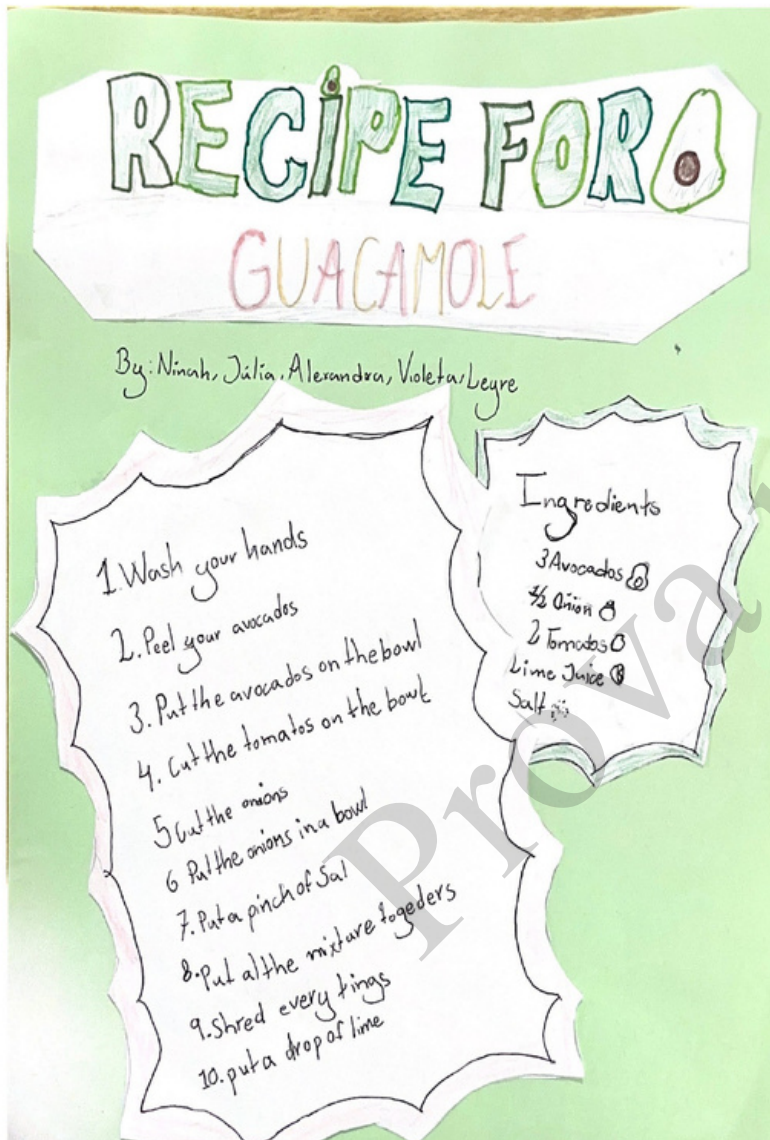 RECIPE FOR
GUACAMOLE
By: Ninah, Júlia, Alexandra, Violeta, Leyre
1. Wash your hands
2. Peel your avocados
3. Put the avocados on the bowl
4. Cut the tomatos on the bowl
5 Cut the onions
6 Put the onions in a bowl
7. Put a pinch of Sal
8. Put al the mixture togeders
9. Shred every tings
10. put a drop of lime
Ingredients
3 Avocados
1/2 Onion
2 Tomatos
Lime Juice
Salt
Prova